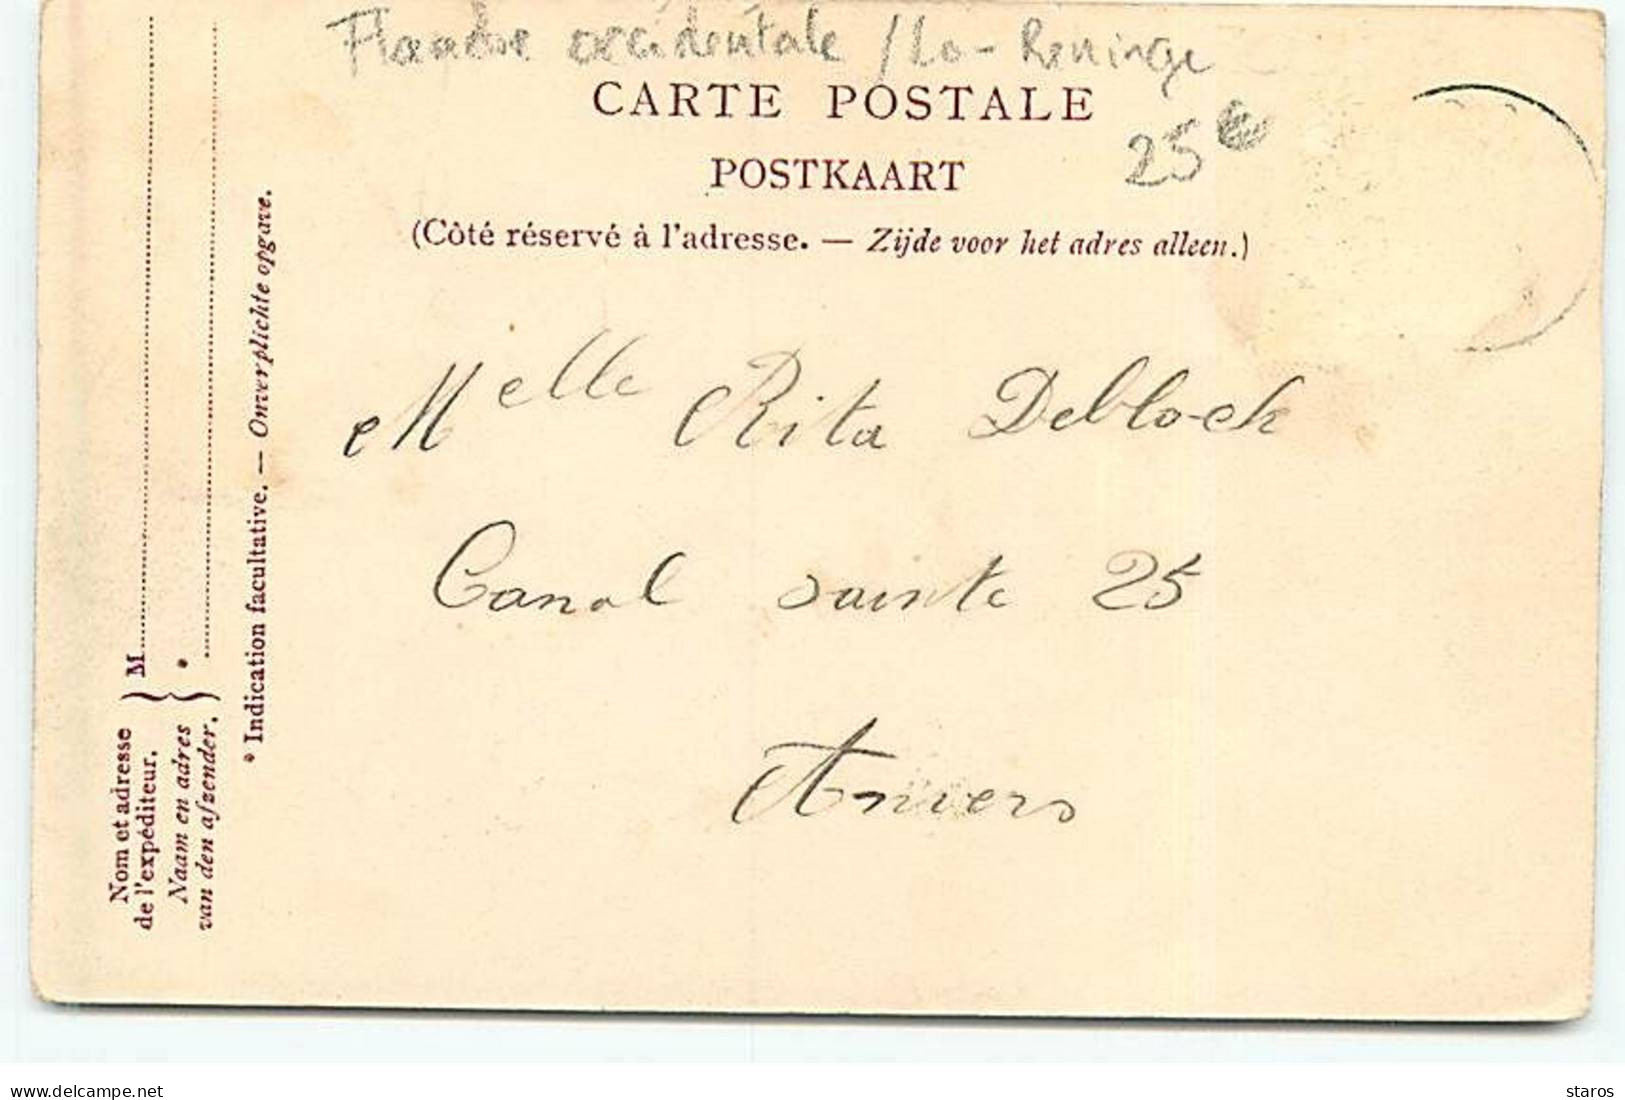 Flandre occidentale / Lo-Reninge
CARTE POSTALE
25 €
POSTKAART
(Côté réservé à l'adresse. — Zijde voor het adres alleen.)
Melle Rita Deblock
Canal Sainte 25
Anvers
Nom et adresse
de l'expéditeur.
M
Naam en adres
van den afzender.
*
* Indication facultative. — Onverplichte opgave.
delcampe.net
staros